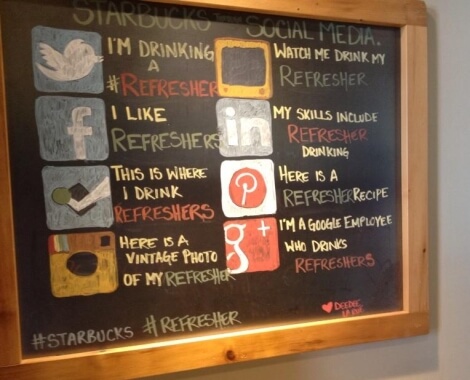 STARBUCKS SOCIAL MEDIA.
I'M DRINKING
A
#REFRESHER
f
I LIKE
REFRESHERS
THIS IS WHERE
I DRINK
REFRESHERS
HERE IS A
VINTAGE PHOTO
OF MY REFRESHER
WATCH ME DRINK MY
REFRESHER
in
MY SKILLS INCLUDE
REFRESHER
DRINKING
HERE IS A
REFRESHER RECIPE
g+
I'M A GOOGLE EMPLOYEE
WHO DRINKS
REFRESHERS
#STARBUCKS #REFRESHER